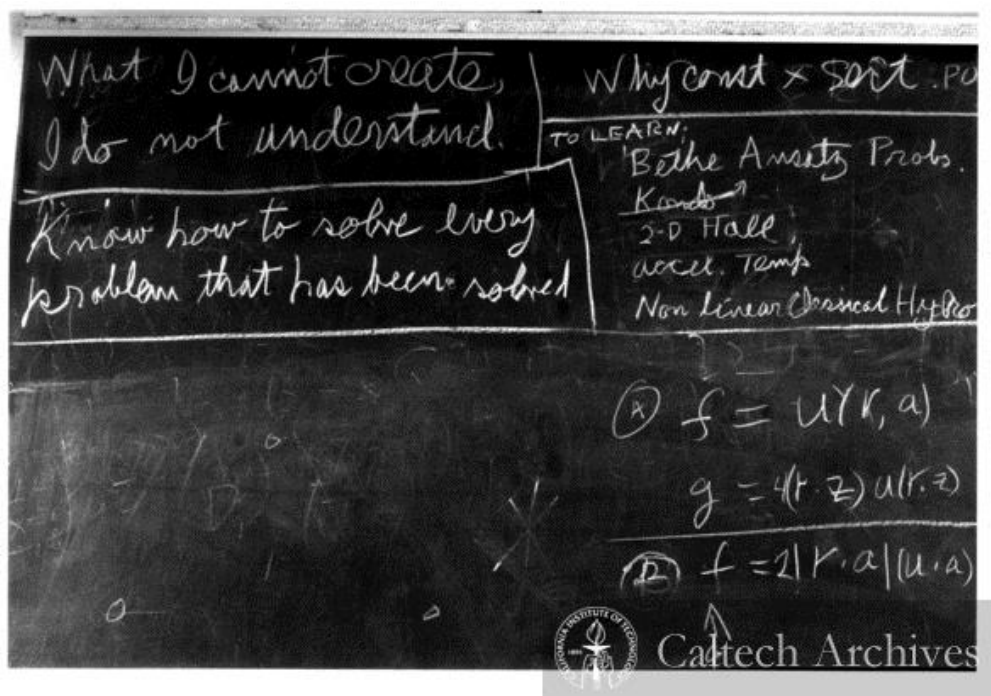 What I cannot create,
I do not understand.
Know how to solve every
problem that has been solved
Why const × sort . PO
TO LEARN:
Bethe Ansatz Probs.
Kondo
2-D Hall
accel. Temp
Non linear Classical Hydro
A f = u(r, a)
g = 4(r·z) u(r·z)
f = 2|r·a|(u·a)
CALIFORNIA INSTITUTE OF TECHNOLOGY
1891
Caltech Archives